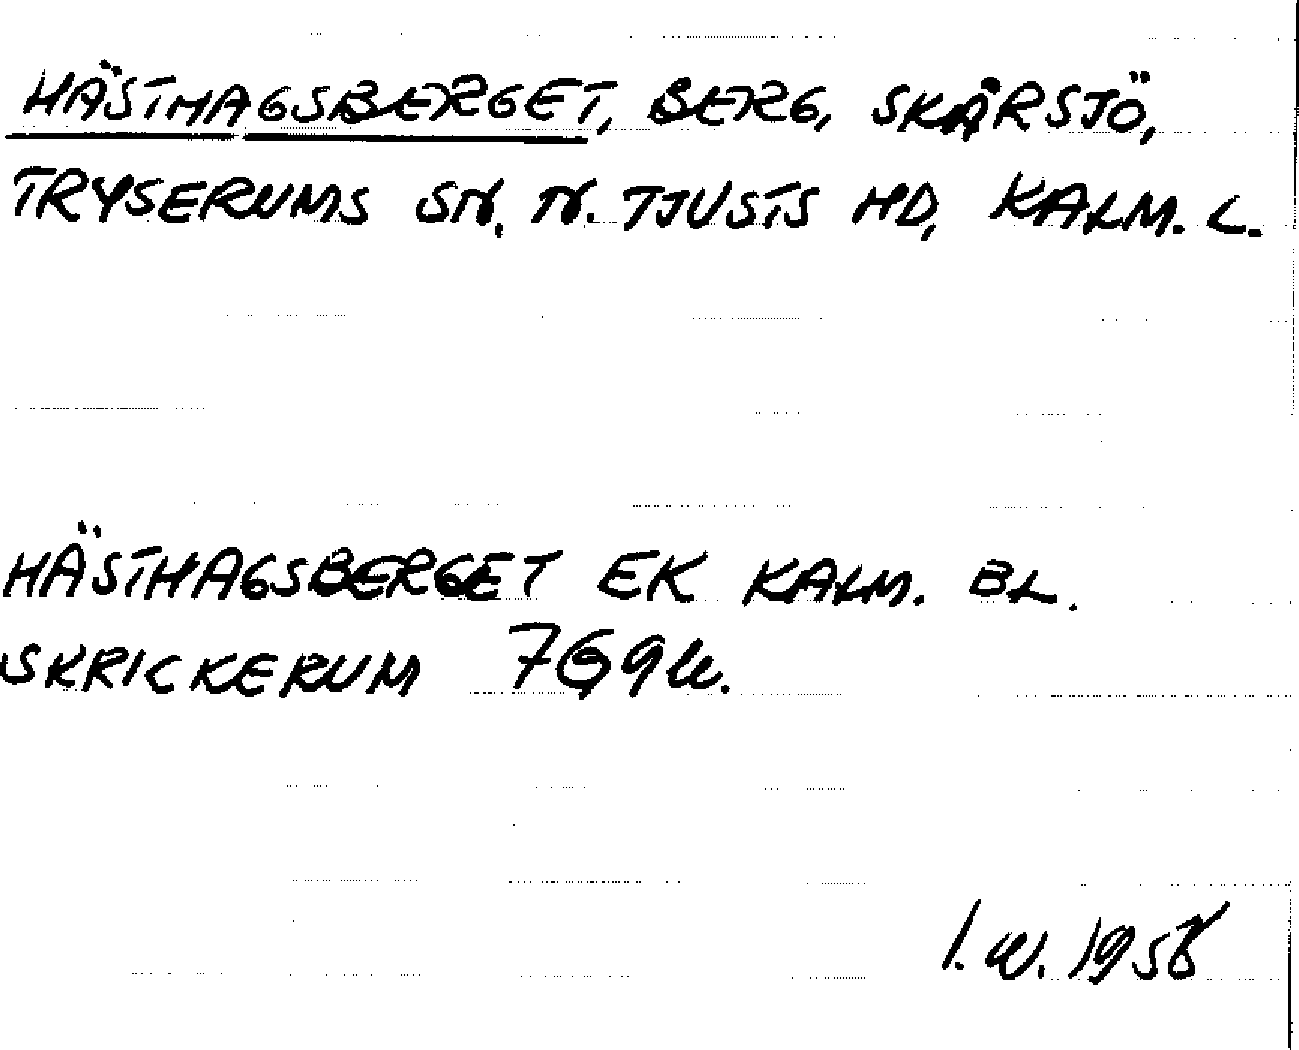 HÄSTHAGSBERGET, BERG, SKÅRSJÖ,
TRYSERUMS SN, N. TJUSTS HD, KALM. L.
HÄSTHAGSBERGET EK KALM. BL.
SKRICKERUM 7G9h.
I. W. 1958